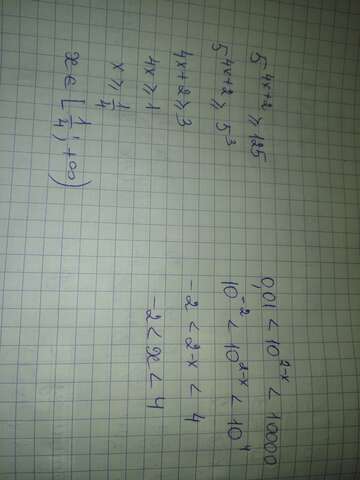 5^{4x+2} ⩾ 125
5^{4x+2} ⩾ 5^3
4x+2 ⩾ 3
4x ⩾ 1
x ⩾ 1/4
x ∈ [1/4; +∞)
0,01 < 10^{2-x} < 10000
10^{-2} < 10^{2-x} < 10^4
-2 < 2-x < 4
-2 < x < 4